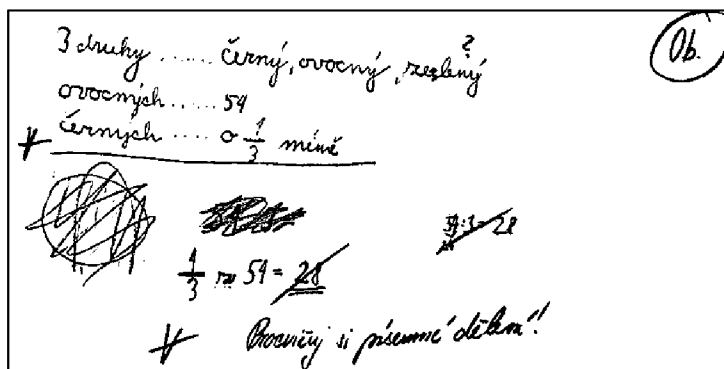 3 druhy ...... černý, ovocný, zelený ?
Ob.
ovocných ..... 54
černých ..... o 1/3 méně
54:3=28
1/3 z 54 = 28
Procvičuj si písemné dělení!